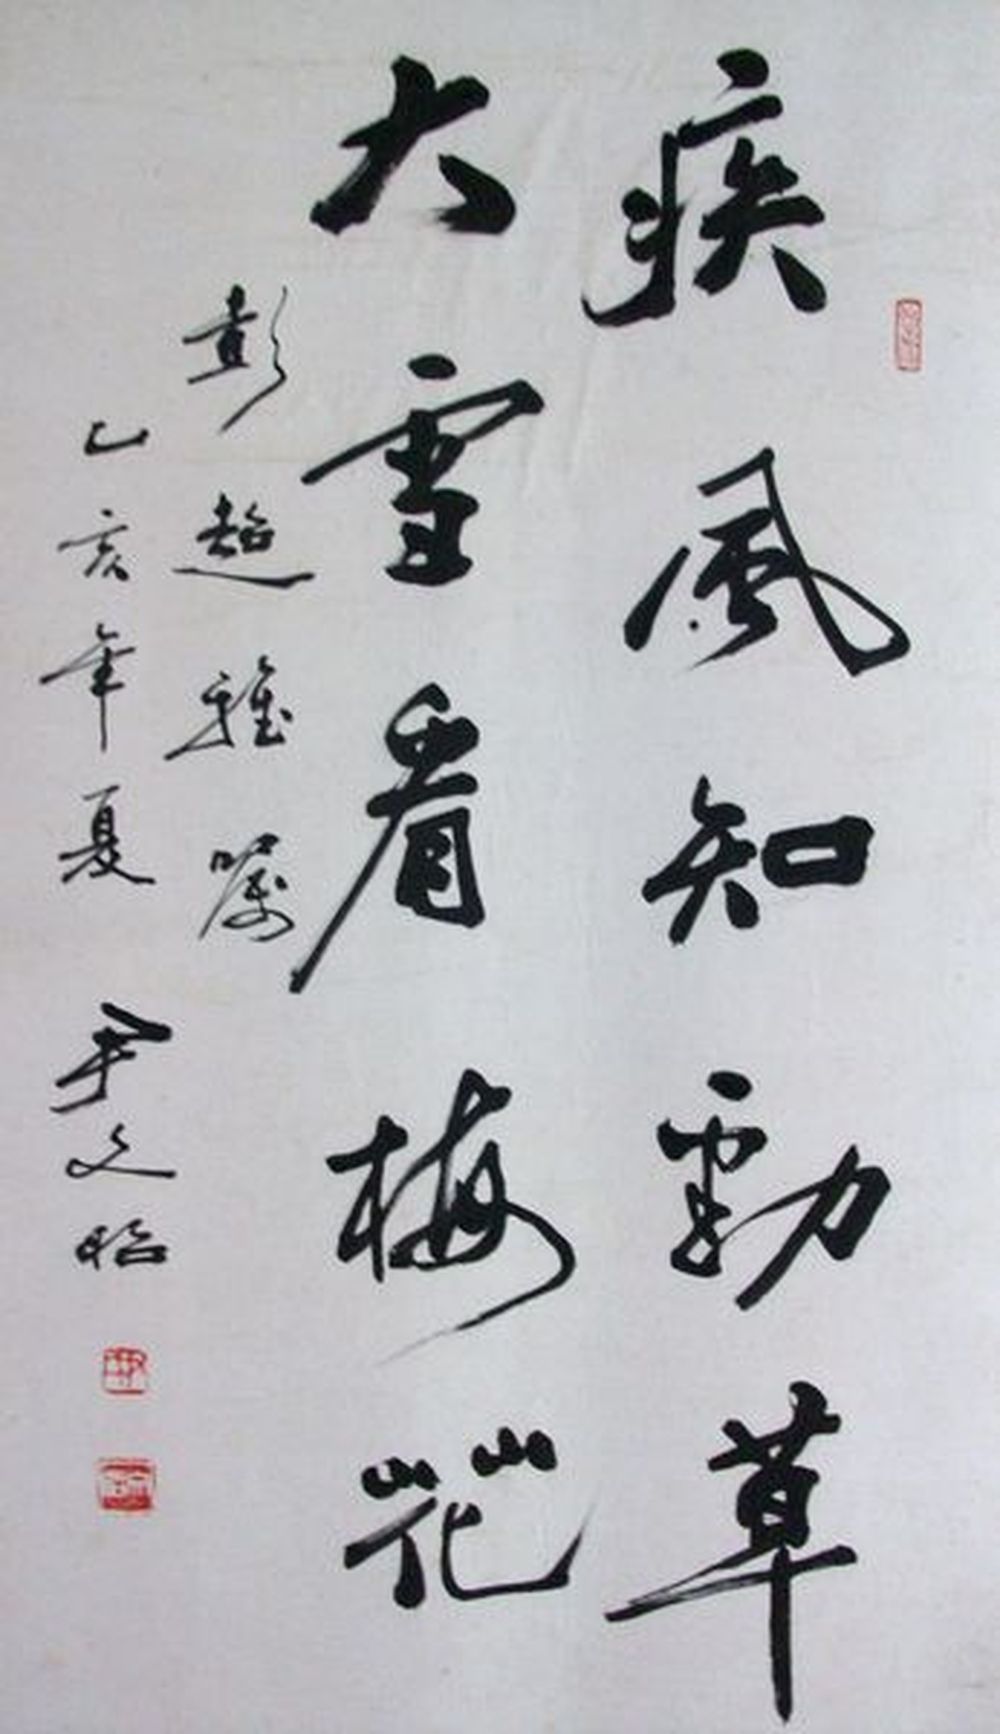 疾風知勁草
大雪看梅花
彭超雅嘱
乙亥年夏 尹文昭